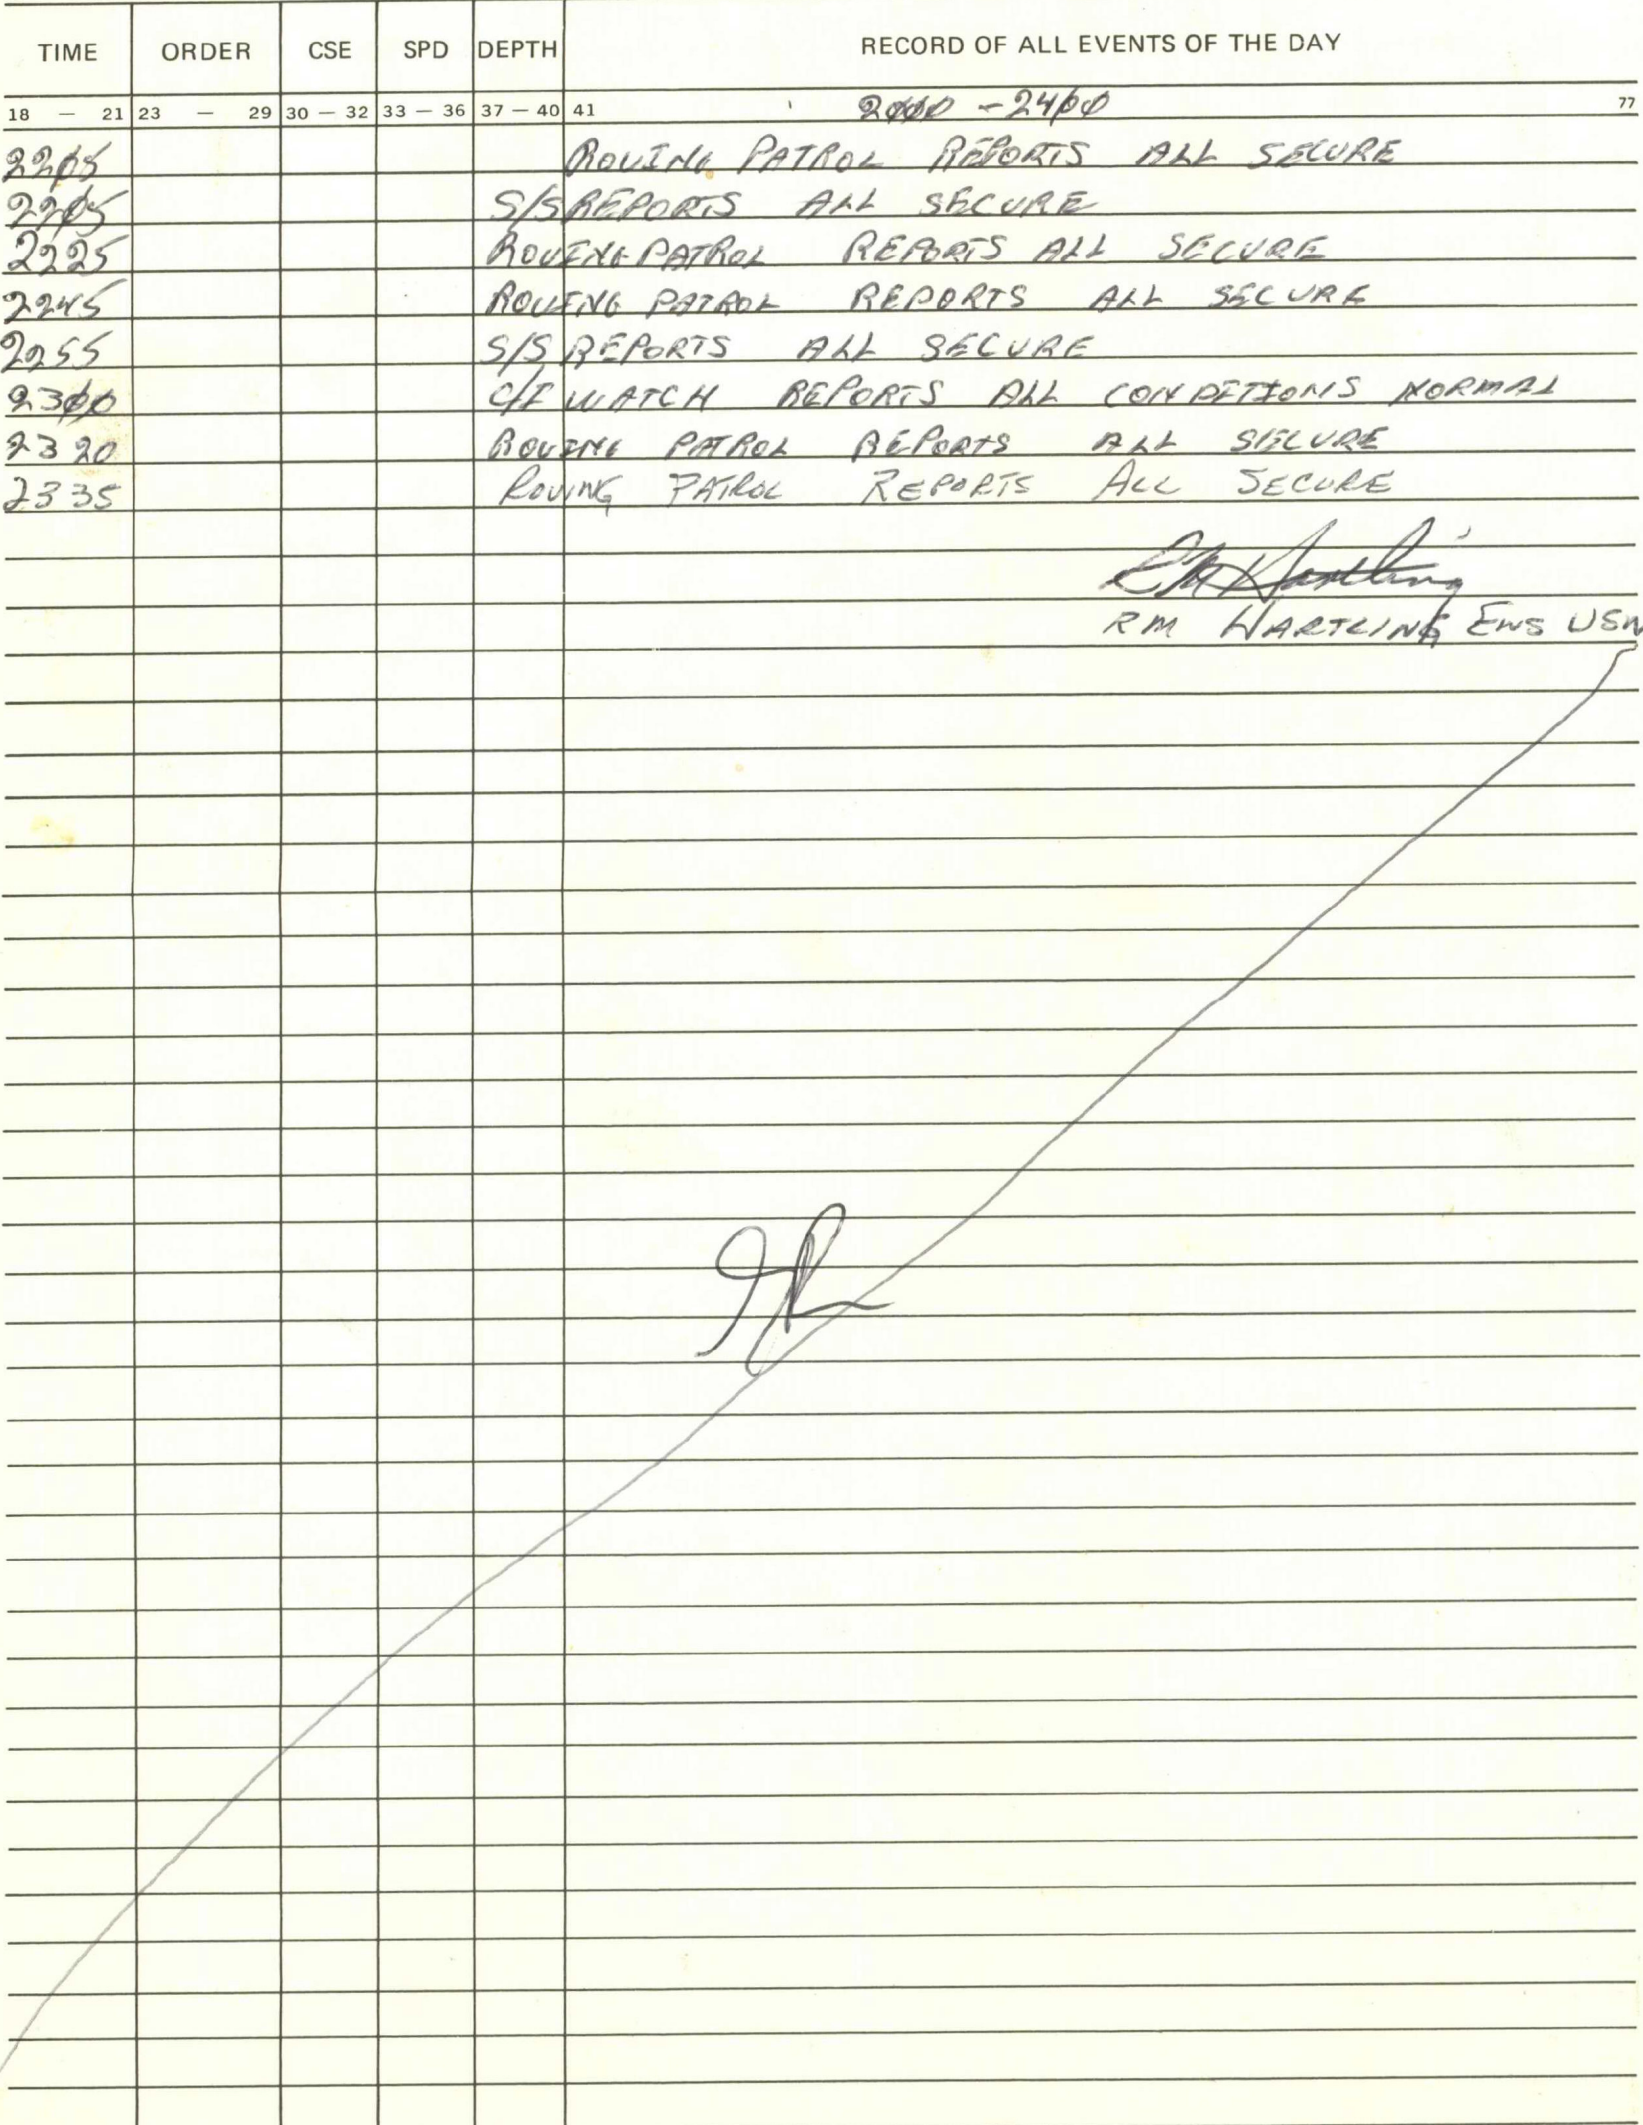 TIME ORDER CSE SPD DEPTH RECORD OF ALL EVENTS OF THE DAY
18 — 21 23 — 29 30 — 32 33 — 36 37 — 40 41 2000 - 2400 77
2205 ROVING PATROL REPORTS ALL SECURE
2205 S/S REPORTS ALL SECURE
2225 ROVING PATROL REPORTS ALL SECURE
2245 ROVING PATROL REPORTS ALL SECURE
2255 S/S REPORTS ALL SECURE
2300 C/I WATCH REPORTS ALL CONDITIONS NORMAL
2320 ROVING PATROL REPORTS ALL SECURE
2335 ROVING PATROL REPORTS ALL SECURE
RM Hartling
RM HARTLING ENS USN